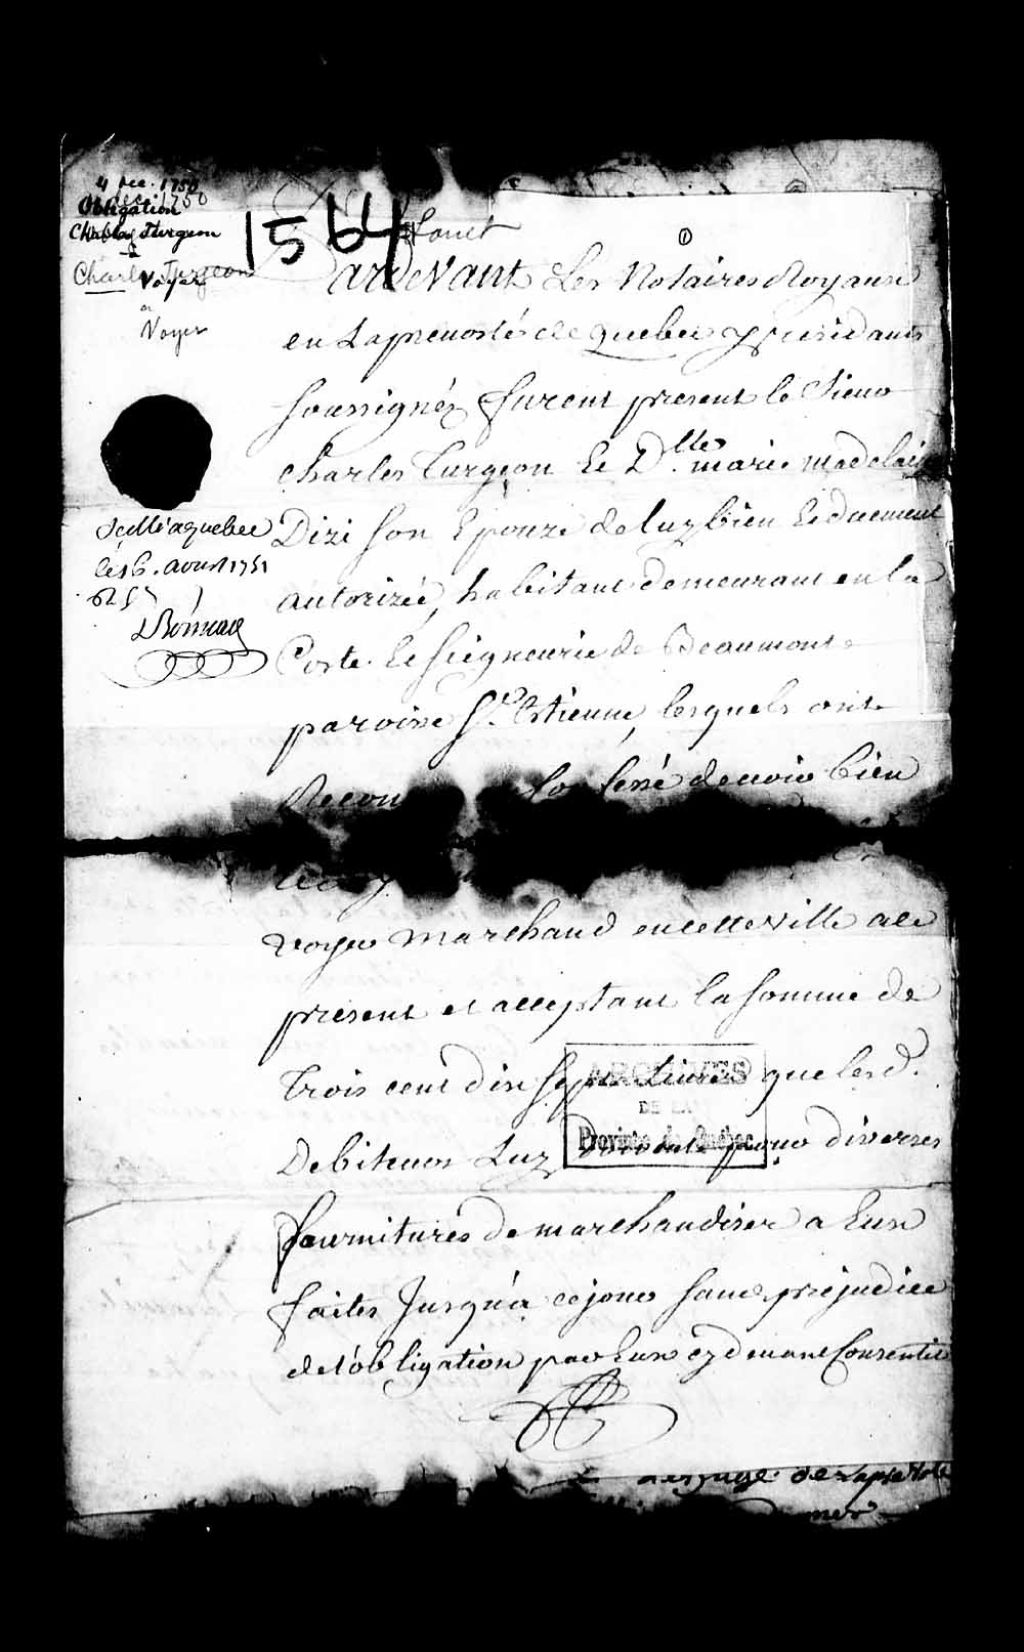 4 Dec. 1750
Obligation
Charles Turgeon
à
Voyer
Charles Turgeon
a
Voyer
1564
Louet
1
Pardevant Les Notaires Royaux
en La prevosté de quebec y residants
soussignéz furent present le Sieur
charles Turgeon & Dlle marie madelai
Dizi son Epouze de luy bien & duement
autorizée, habitant demeurant en la
Coste & seigneurie de Beaumont
paroisse St Estienne, lesquels ont
Recon Confessé devoir bien
voyer marchand en cette ville a ce
present et acceptant la somme de
Trois cent dix sept Livres que lesd.
Debiteurs Luy doivent pour diverses
fournitures de marchandises a Eux
faites Jusqu'a ce jour sans prejudice
de l'obligation par Eux cy devant Consentie
Scellé a quebec
le 16. avril 1751
ARCHIVES
DE LA
Province de Québec